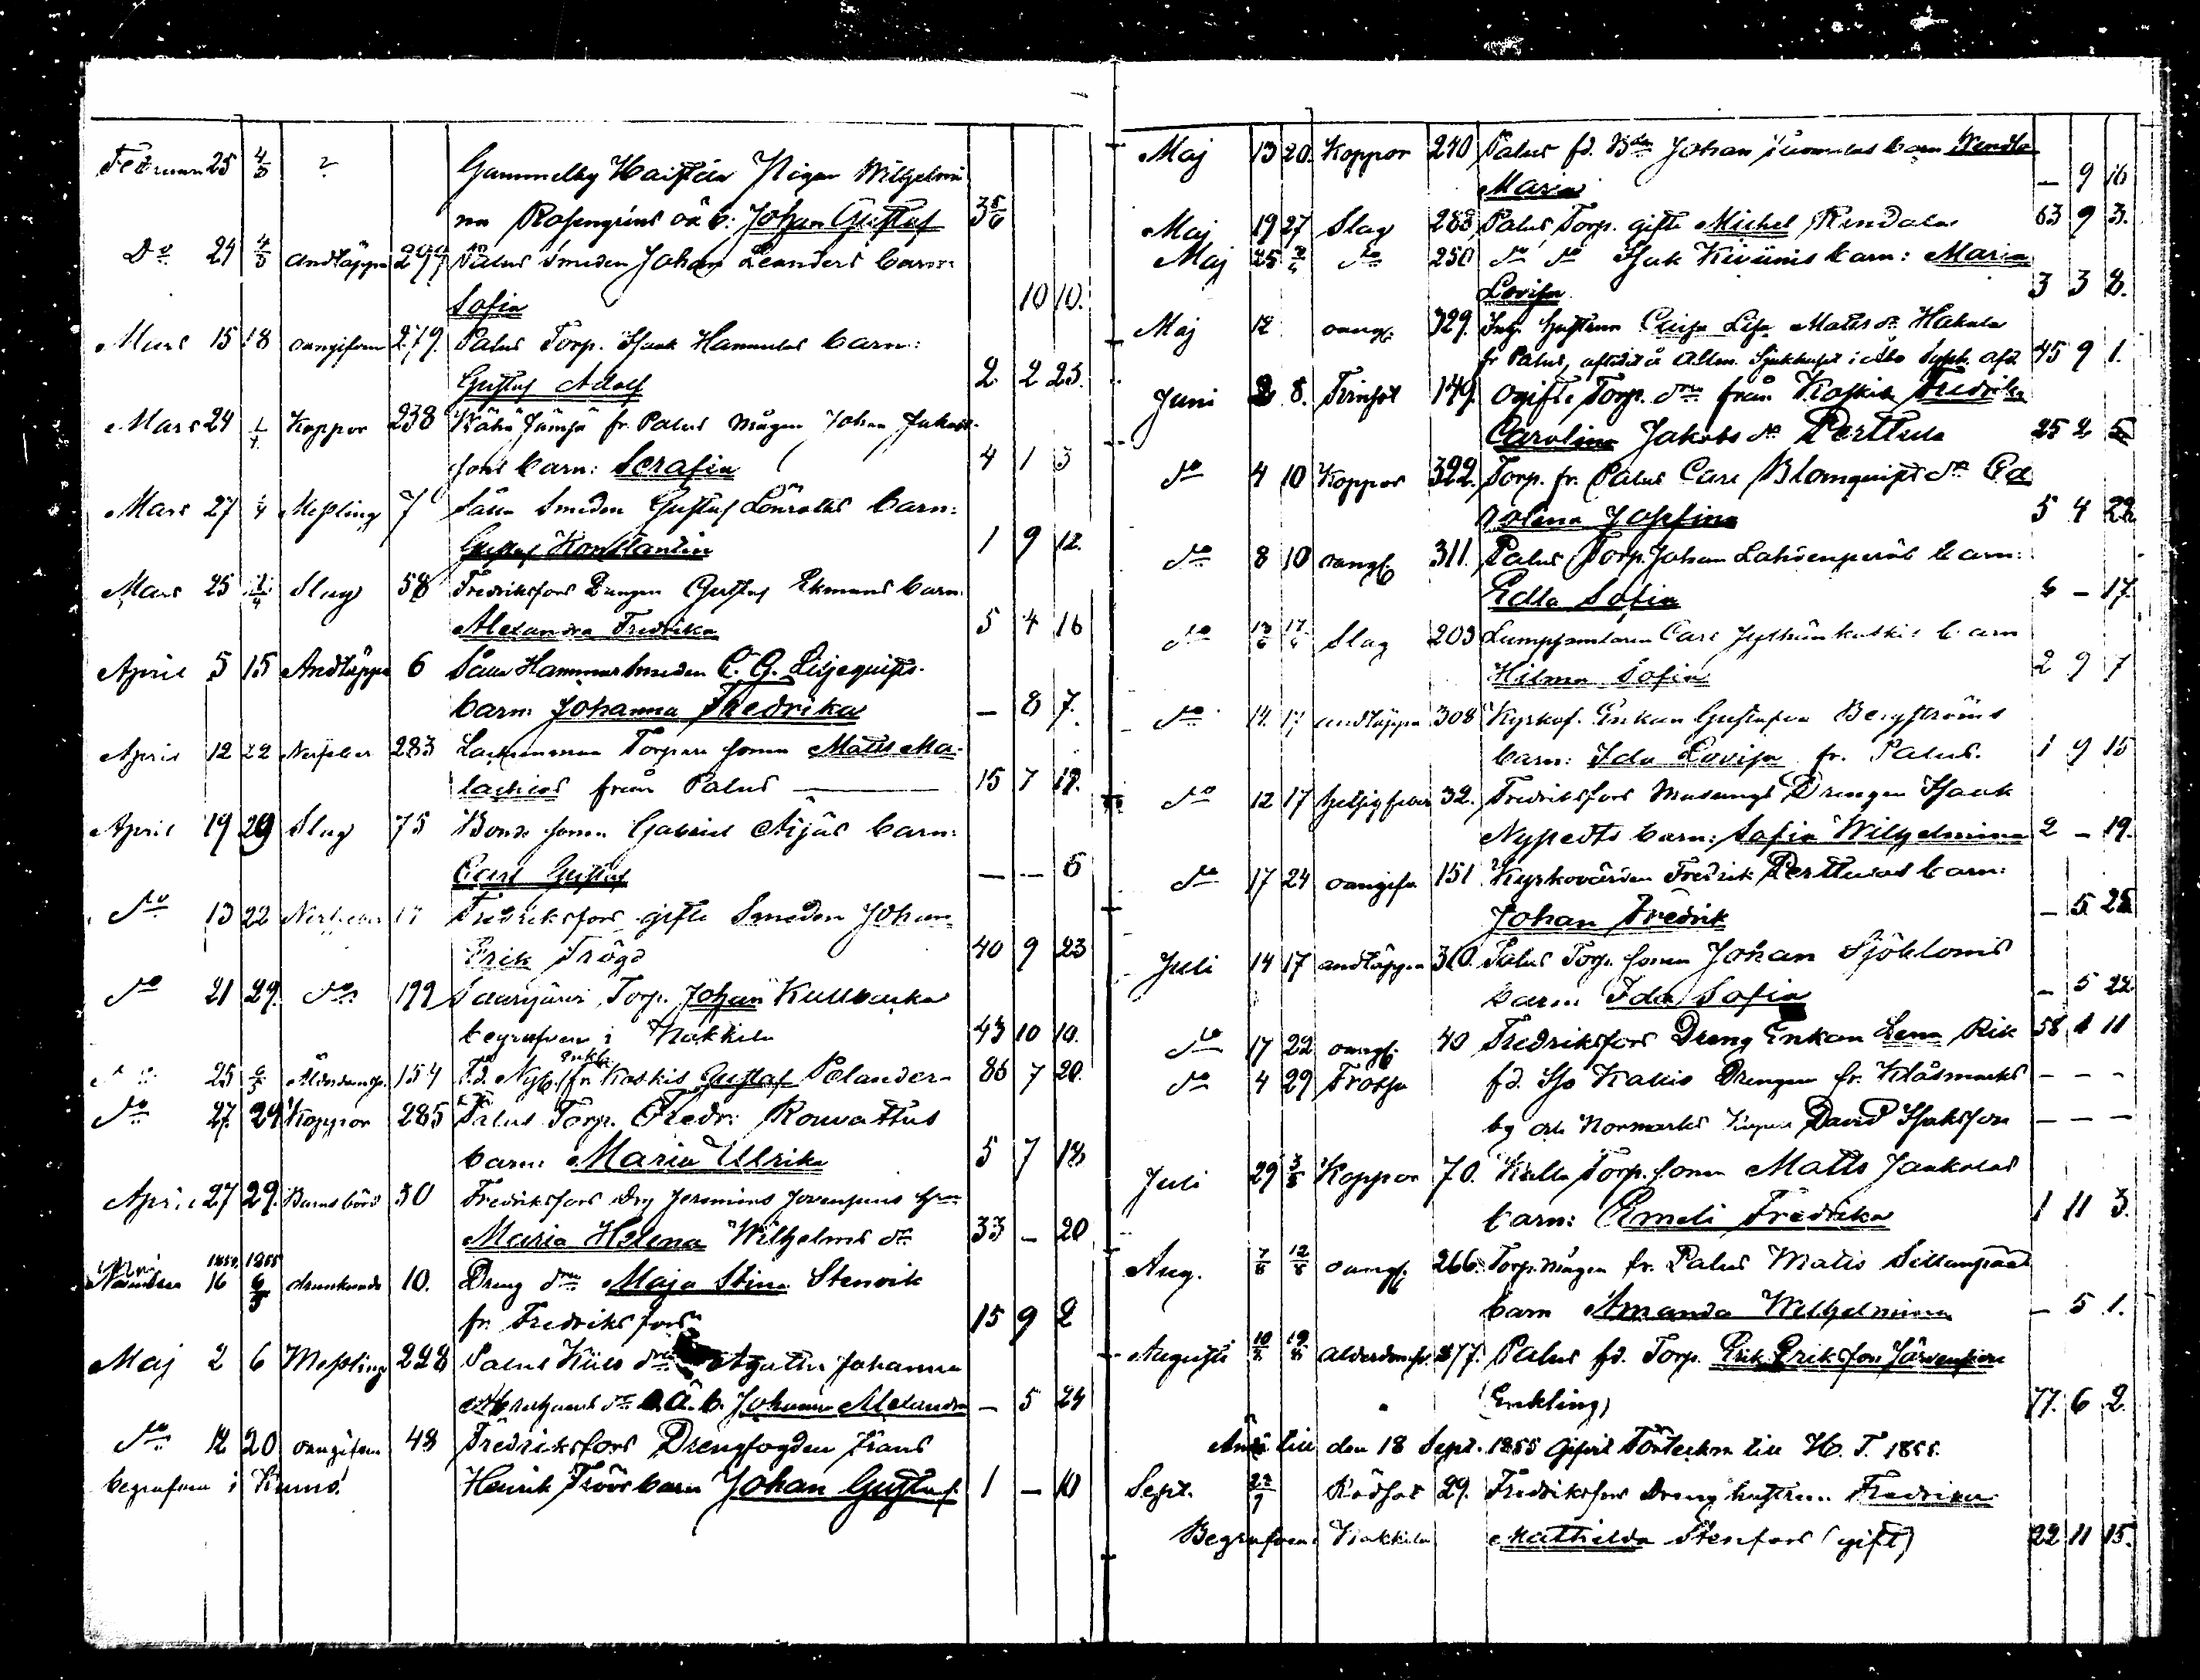 Februari 25 4/3 Gammelby Pigan Wilhelmi
na Rosengrens oä b. Johan Gustaf 3 5/6
Do 24 4/3 andtäppa 297 Palus Smeden Johan Leanders barn:
Sofia 10 10.
Mars 15 18 oangifven 279. Palus Torp. Isaak Hannulas barn:
Gustaf Adolf 2 2 23.
Mars 24 1/4 Koppor 238 fr. Palus Mågen Johan Jakobs-
sons barn: Serafia 4 1 3
Mars 27 Messling 7 Smeden Gustaf Lönroths barn:
Gustaf Konstantin 1 9 12.
Mars 25 1/4 Slag 58 Fredriksfors Drengen Gustaf Ekmans barn
Alexandra Fredrika 5 4 16
April 5 15 Andtäppa 6 Hammarsmeden C. G. Liljequists
barn Johanna Fredrika — 8 7.
April 12 22 Nerffeber 283 Torpare sonen Matts Ma-
lachias från Palus 15 7 18.
April 19 29 Slag 75 Bonde sonen Gabriel Äijäs barn:
Carl Gustaf — — 6
do 13 22 Nerffeber 17 Fredriksfors gifte Smeden Johan
Erik Trögd 40 9 23
do 21 29. do 199 Torp. Johan Kullbacka
begrafven i Nakkila 43 10 10.
do 25 6/5 Ålderdomsv. 154 F.d. Nyb. enkl. fr Koskis Gustaf Polander 86 7 20.
do 27. 29 Koppor 285 Palus Torp. Fredr:
barn: Maria Ulrika 5 7 18
April 27 29. Barnsbörd 30 Fredriksfors Drg
Maria Helena Wilhelms dr 33 — 20
1854 1855
November 16 6/5 drunknade 10. Dreng drn Maja Stina Stenvik
fr Fredriksfors 15 9 2
Maj 2 6 Messling 228 Palus drn Agatha Johanna
dr o. ä. b. Johanna Alexandra — 5 24
do 12 20 oangifven 48 Fredriksfors Drengfogden Frans
begrafven i Kumo. Henrik barn Johan Gustaf. 1 — 10
Maj 13 20. Koppor 240 Palus fd. Bdn Johan barn Wendla
Maria — 9 16
Maj 19 27 Slag 283 Palus Torp. gifte Michel Rindala 63 9 3.
Maj 25 3/6 do 250 do do Isak Kiviinis barn: Maria
Lovisa 3 3 8.
Maj 12 oangf. 329. Inh. hustrun Caisa Lisa Mattsdr Hakala
fr Palus, afled. å Allm. Sjukhuset i Åbo 45 9 1.
Juni 2 8. Trinsot 149. ogifte Torp. drn från Koskis Fredrika
Carolina Jakobs dr Perttula 25 2 5
do 4 10 Koppor 322. Torp. fr. Palus Carl Blomquist dr Ca
rolina Josefina 5 4 22
do 8 10 oangf. 311. Palus Torp. Johan Lahdenperäs barn:
Edla Sofia 6 — 17.
do 13/6 17/6 Slag 203 Lumpsamlaren Carl barn
Hilma Sofia 2 9 7
do 14 17 andtäppa 308 Kyrkof. Enkan Gustafva Bergströms
barn: Ida Lovisa fr. Palus. 1 9 15
do 12 17 32. Fredriksfors Masungs Drengen Isaak
Nypedts barn: Sofia Wilhelmina 2 — 19.
do 17 24 oangifn 151. Kyrkovärden Fredrik Perttulas barn:
Johan Fredrik — 5 25
Juli 14 17 andtäppa 310. Palus Torp. sonen Johan Sjöbloms
barn: Ida Sofia — 5 22
do 17 22 oangf. 40 Fredriksfors Dreng Enkan Lena Rik 58 1 11
do 4 29 Frossa fd. Drengen fr. Klåsmarks — — —
by och Normarks David Isaksson — — —
Juli 29 3/8 Koppor 70. Torp. sonen Matts Jaakolas
barn: Emeli Fredrika 1 11 3.
Aug. 7/8 12/8 oangf. 266. Torp. mågen fr. Palus Matts Sillanpää
barn Amanda Wilhelmina — 5 1.
Augusti 10/8 19/8 Ålderdomsv. 177. Palus fd. Torp. Erik Eriksson Järvenpää
(Enkling) 77. 6 2.
Ända till den 18 Sept. 1855 gifvit Förteckn till H. T. 1855.
Sept. 22/9 Rödsot 29. Fredriksfors Dreng hustrun Fredrika
Begrafven i Nakkila Mathilda Stenfors (gift) 22 11 15.